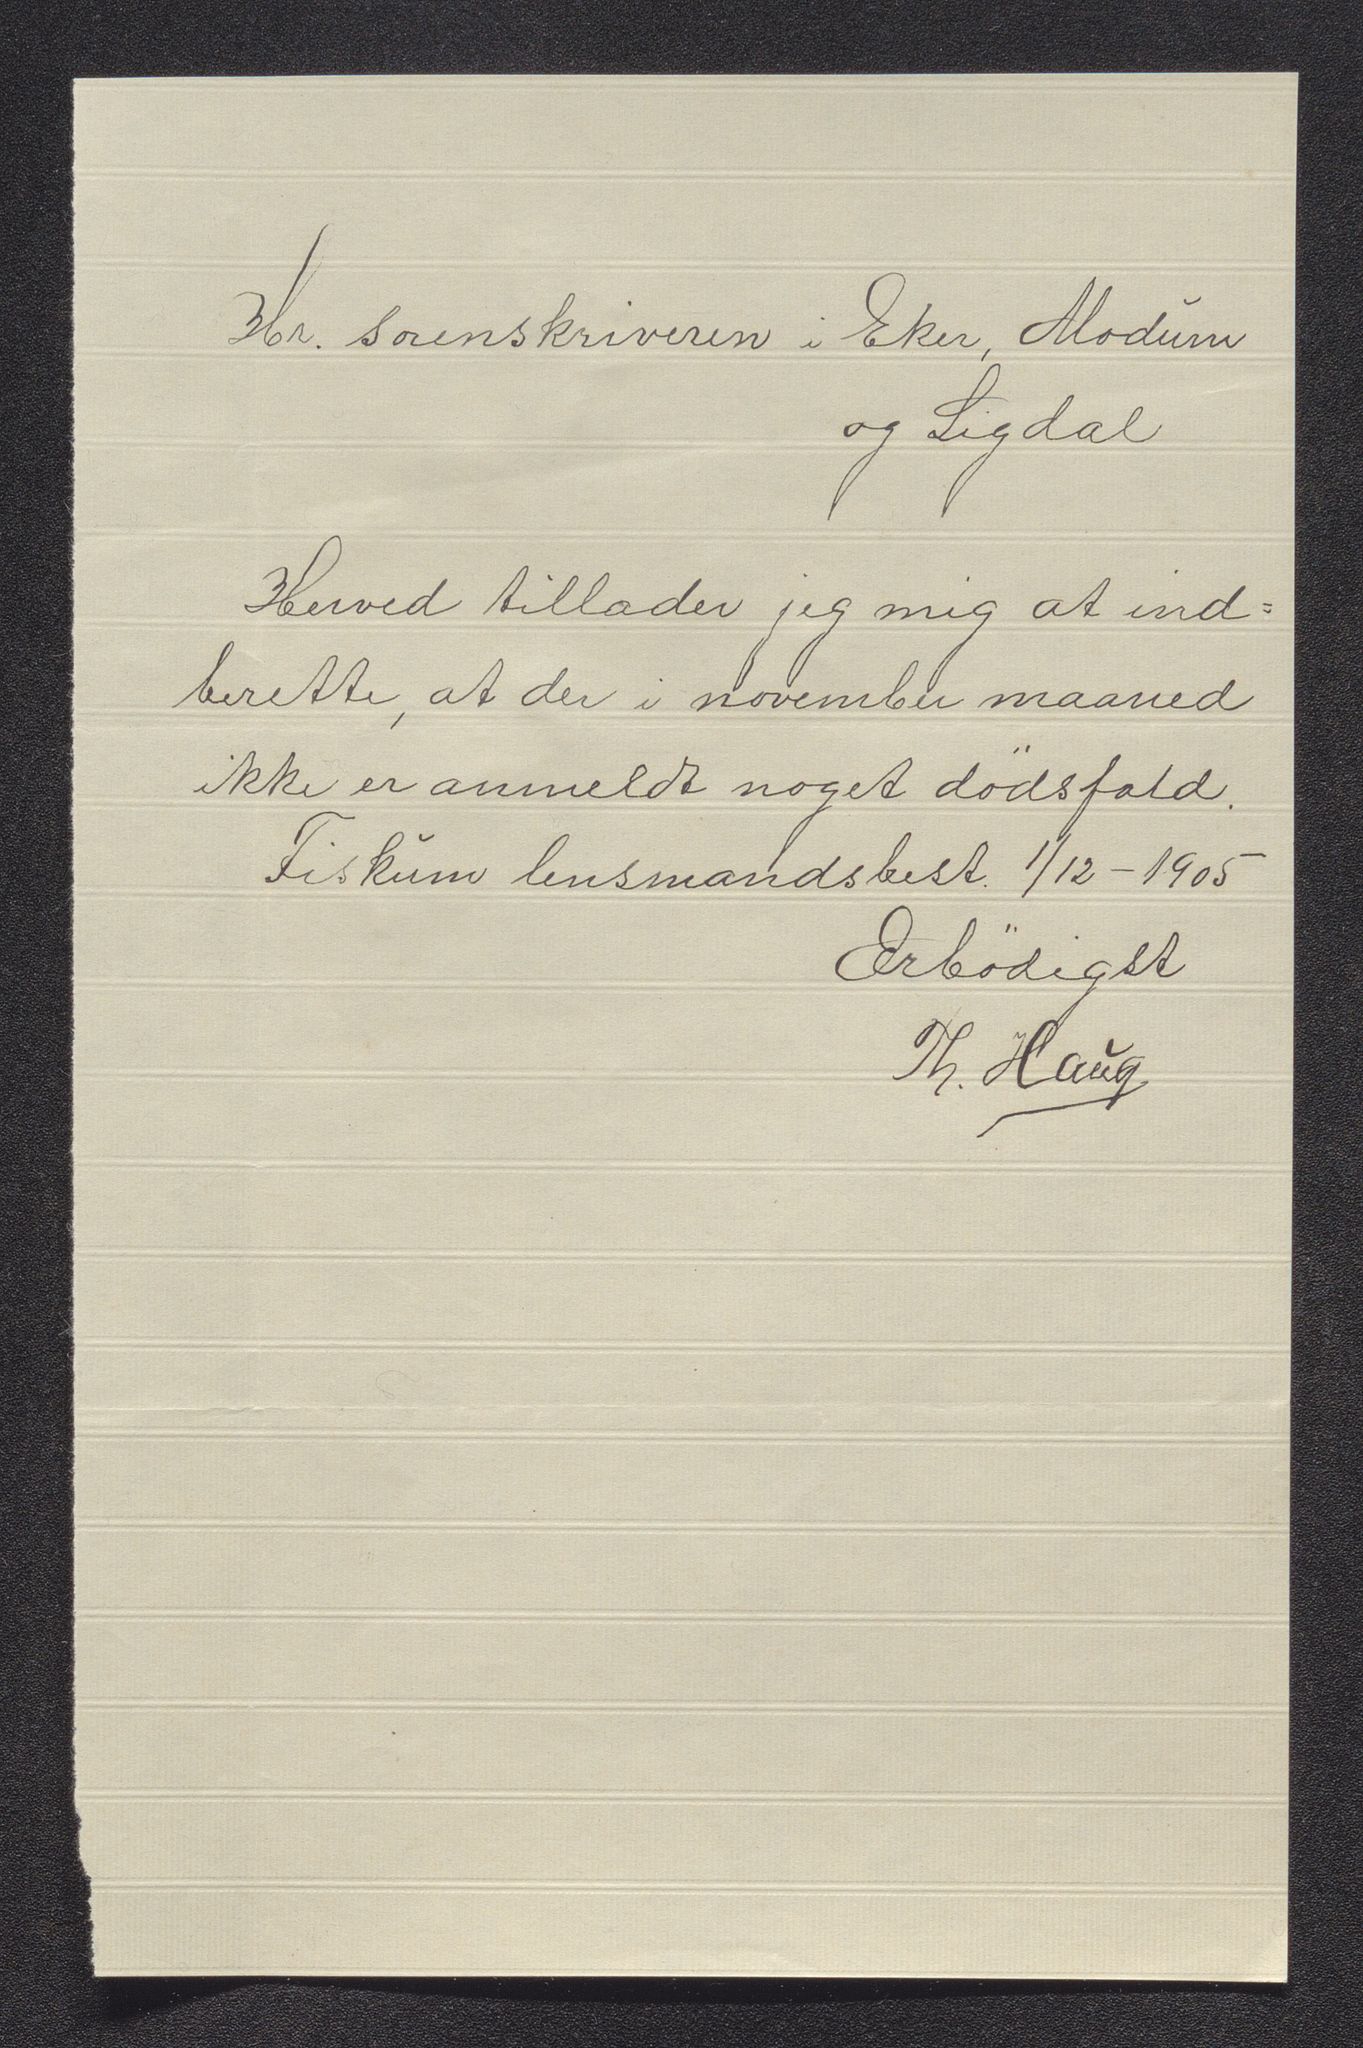 Hr. sorenskriveren i Eker, Modum
og Sigdal
Herved tillader jeg mig at ind=
berette, at der i november maaned
ikke er anmeldt noget dödsfald.
Fiskum lensmandsbest. 1/12-1905
Ærbödigst
Th. Haug